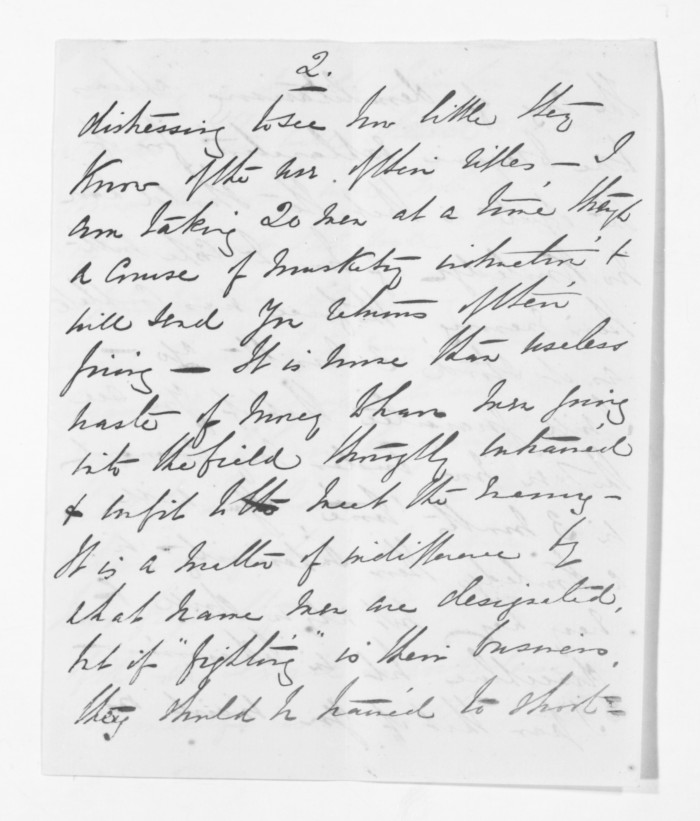 2.
distressing to see how little they
know of the use of their rifles – I
am taking 20 men at a time through
a course of musketry instruction &
will send you returns of their
firing — It is more than useless
waste of money to have men going
into the field thoroughly untrained
& unfit to meet the enemy –
It is a matter of indifference by
what name men are designated,
but if "fighting" is their business,
they should be trained to shoot –